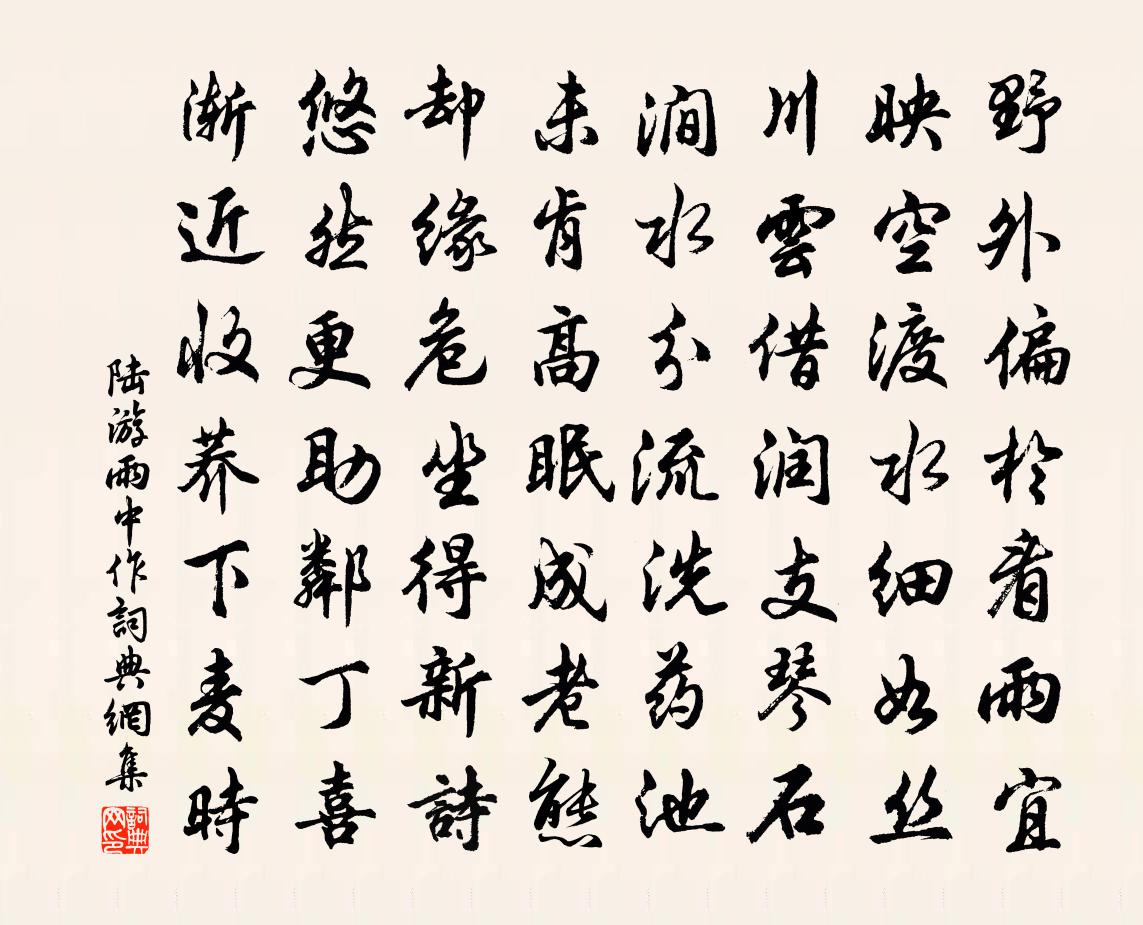 野外偏於看雨宜
映空渡水細如丝
川雲借润支琴石
澗水分流洗药池
未肯高眠成老態
却缘危坐得新詩
悠然更助鄰丁喜
渐近收荞下麦時
陆游雨中作詞典網集
詞典网印